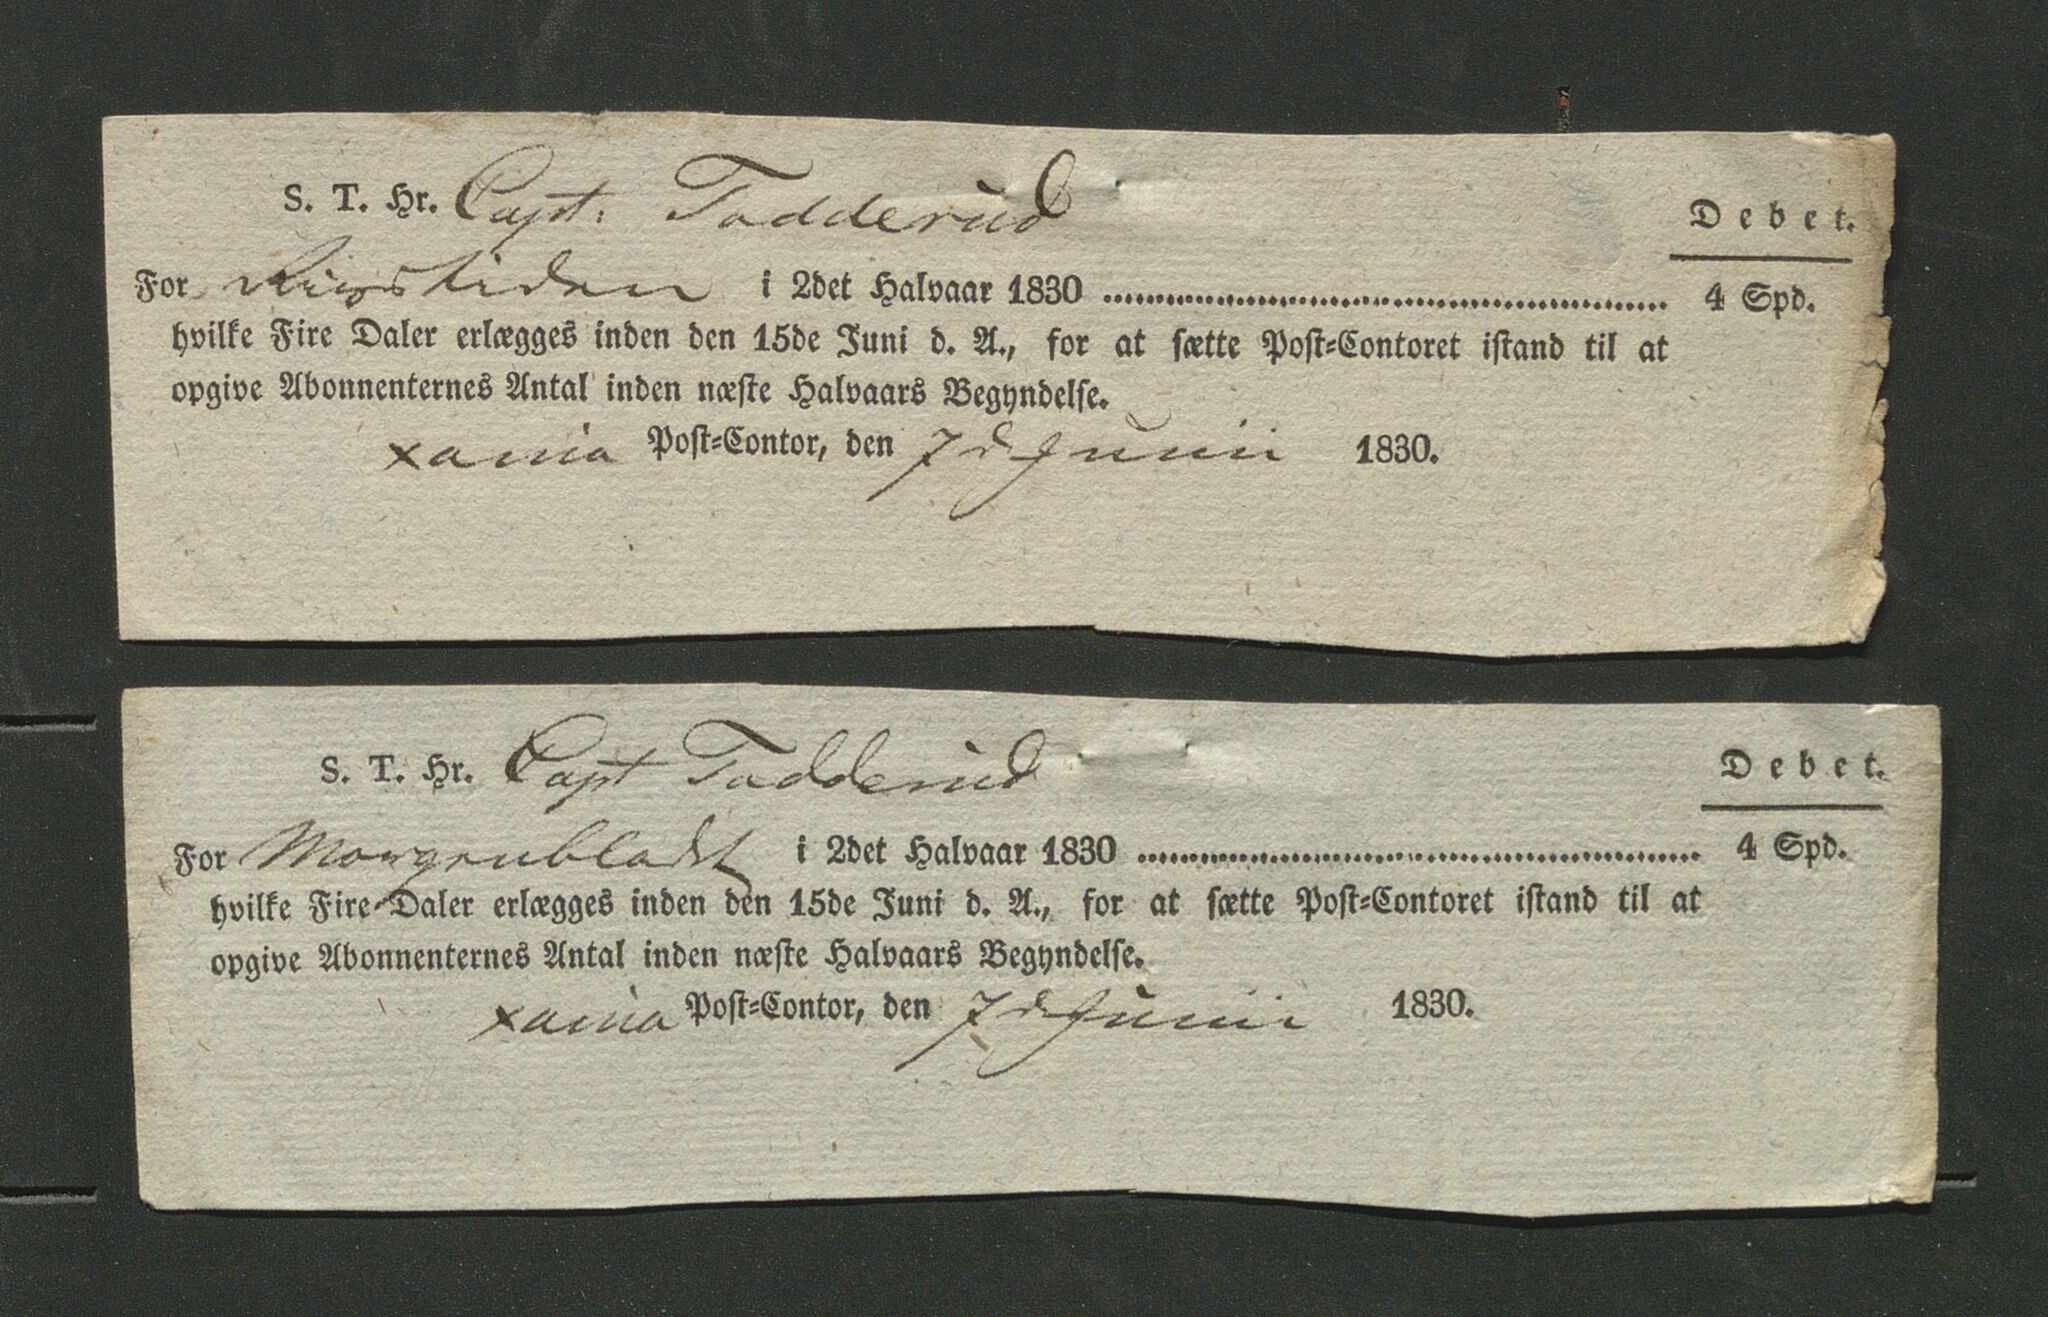 S. T. Hr. Capt. Tadderud
Debet.
For Rigstiden i 2det Halvaar 1830 ........ 4 Spd.
hvilke Fire Daler erlægges inden den 15de Juni d. A., for at sætte Post-Contoret istand til at
opgive Abonnenternes Antal inden næste Halvaars Begyndelse.
Xania Post-Contor, den 7 d Junii 1830.
S. T. Hr. Capt Tadderud
Debet.
For Morgenbladet i 2det Halvaar 1830 ........ 4 Spd.
hvilke Fire Daler erlægges inden den 15de Juni d. A., for at sætte Post-Contoret istand til at
opgive Abonnenternes Antal inden næste Halvaars Begyndelse.
Xania Post-Contor, den 7 d Junii 1830.